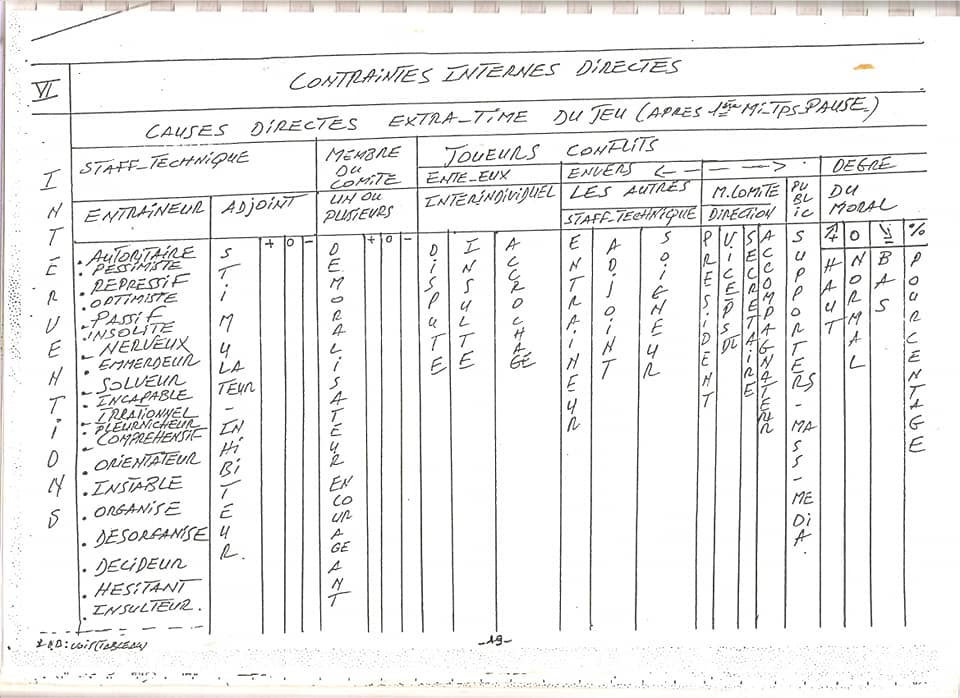 VI
CONTRAINTES INTERNES DIRECTES
CAUSES DIRECTES EXTRA-TIME DU JEU (APRES 1ère Mi-TpS PAUSE)
INTÉRVENTiONS
STAFF-TECHNIQUE
MEMBRE DU COMITE
JOUEURS CONFLITS
ENTE-EUX
ENVERS
DEGRE
ENTRAÎNEUR
ADJOINT
UN OU PLUSiEURS
INTERINDIVIDUEL
LES AUTRES
M.COMITE
PUBLiC
DU MORAL
STAFF-TECHNIQUE
DIRECTION
+ 0 -
+ 0 -
0
%
. AUTORITAIRE
. PESSIMISTE
. REPRESSIF
. OPTIMISTE
. PASSIF
. INSOLITE
. NERVEUX
. EMMERDEUR
. SOLVEUR
. INCAPABLE
. IRRATIONNEL
. PLEURNICHEUR
. COMPREHENSIF
. ORIENTATEUR
. INSTABLE
. ORGANISE
. DESORGANISE
. DECIDEUR
. HESITANT
. INSULTEUR.
STiMULATEUR - INHiBiTEUR.
DEMORALiSATEUR ENCOURAGEANT
DiSPUTE
INSULTE
ACCROCHAGE
ENTRAiNEUR
ADJOiNT
SOiGNEUR
PRESiDENT
ViCE
SECRETAiRE
ACCOMPAGNATEUR
SUPPORTERS - MASS - MEDiA.
HAUT
NORMAL
BAS
POURCENTAGE
-19-